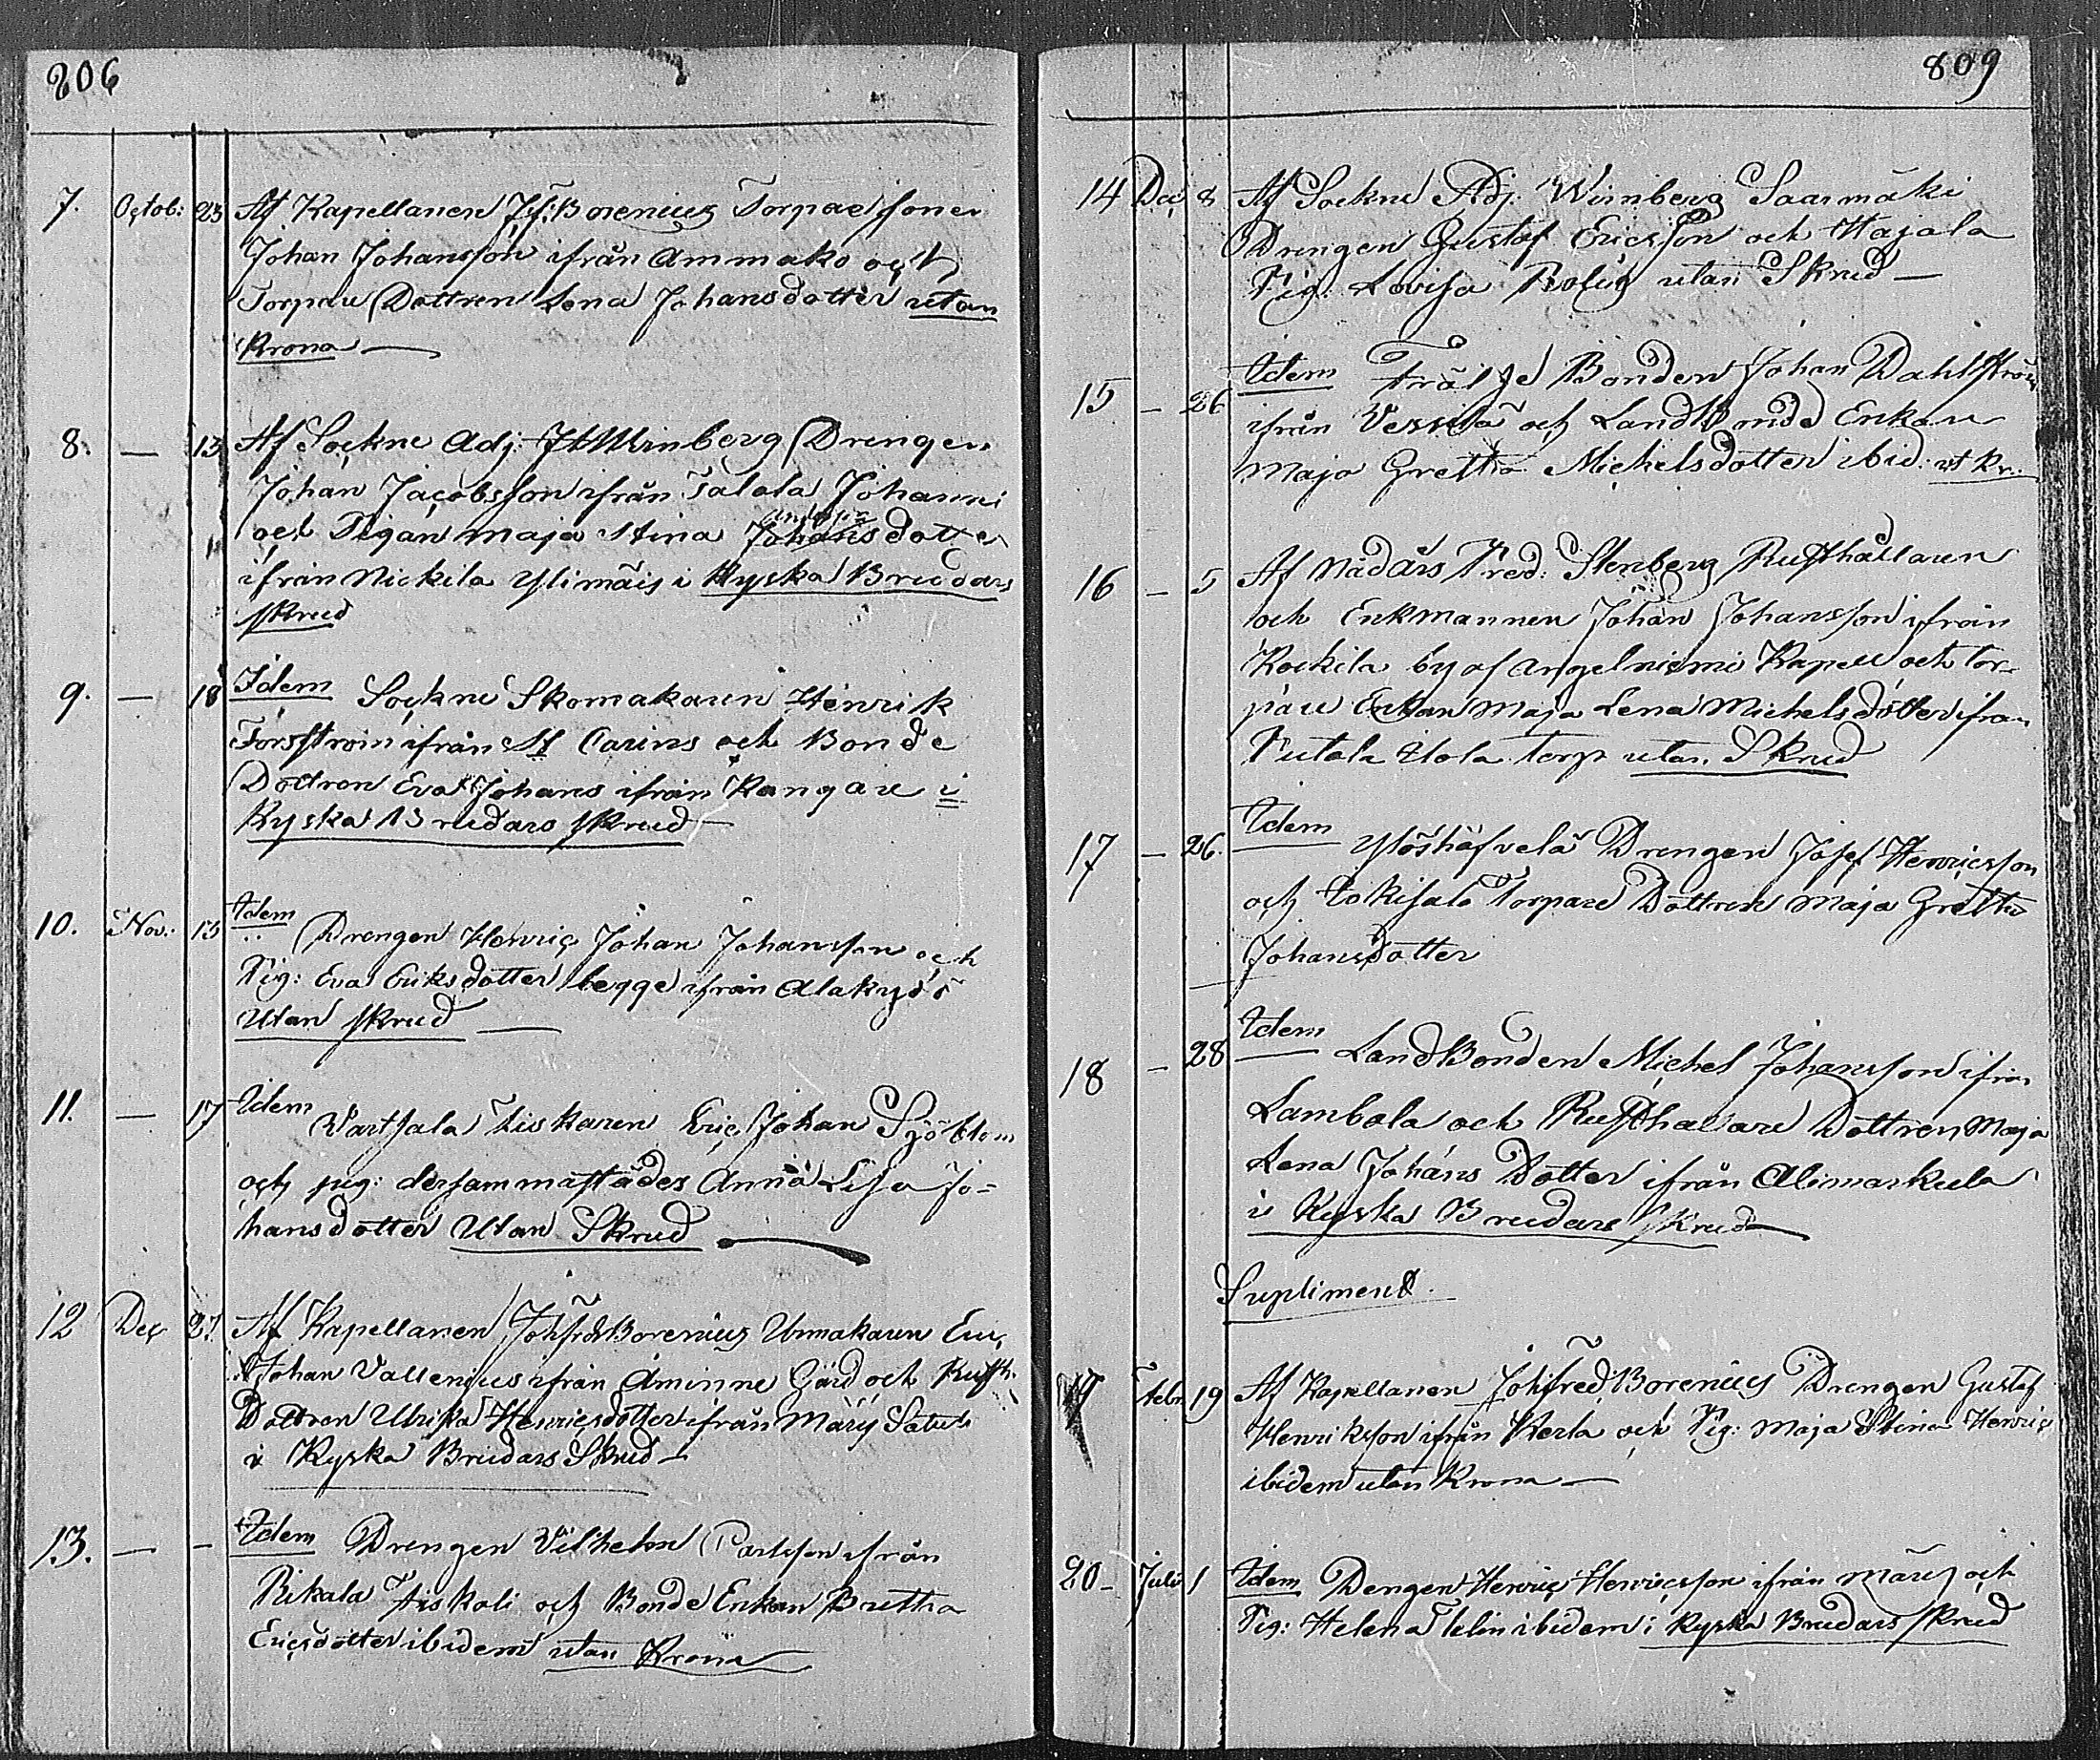 206
7. Octob: 23 Af Kapellanen Jf: Borenius Torpare sonen
Johan Johansson ifrån Ammako och
Torpare Dottren Lena Johansdotter utan
Krona
8. — 13 Af Sockne Adj. Winberg Drengen
Johan Jacobsson ifrån Talola Johanni
och Pigan Maja Stina Johansdotter
ifrån Nickila Ylimäis i Ryska Brudars
skrud
9. — 18 Idem Sockne Skomakaren Henrik
Forsström ifrån St Carins och Bonde
Dottren Eva Johans ifrån Kangare i
Ryska Brudars skrud
10. Nov: 13 Idem Drengen Henric Johan Johansson och
Pig: Eva Eriksdotter begge ifrån Alakyö
Utan skrud
11. — 17 Idem Vartsala Fiskaren Eric Johan Sjöblom
och pig: dersammastädes Anna Lisa Jo-
hansdotter Utan Skrud
12 Dec 27. Af Kapellanen Joh fred Borenius Urmakaren Eric
Johan Vallenius ifrån Åminne Gård och Rusth.
Dottren Ulrika Henricsdotter ifrån Märy Satul
i Ryska Brudars Skrud
13. — - Idem Drengen Vilhelm Carlsson ifrån
Rikala Fiskali och Bonde Enkan Bretha
Ericsdotter ibidem utan Krona
809
14 Dec 8 Af Sockne Adj. Winberg Saarmäki
Drengen Gustaf Ericsson och Hajala
Pig: Lovisa Rolig utan Skrud
15 — 26 Idem Frälse Bonden Johan Dahlström
ifrån Vessilä och LandBonde Enkan
Maja Gretha Michelsdotter ibid: ut Kr:
16 — 5 Af Nådårs Pred: Stenberg Rusthållaren
och Enkmannen Johan Johansson ifrån
Kockila by af Angelniemi Kapell och tor-
pare Enkan Maja Lena Michelsdotter ifrån
Putola torp utan Skrud
17 — 26. Idem Drengen Josef Henricsson
och Tokisalo Torpare Dottren Maja Gretha
Johansdotter
18 — 28 Idem LandBonden Michel Johansson ifrån
Lambola och Rusthållare Dottren Maja
Lena Johans Dotter ifrån Alimarkula
i Ryska Brudars skrud
Supliment.
Febr. 19 Af Kapellanen Joh fred Borenius Drengen Gustaf
Henriksson ifrån Kerla och Pig: Maja Stina Henrics
ibidem utan Krona
20 - Juli 1 Idem Dengen Henric Henricsson ifrån Märy och
Pig: Helena Telin ibidem i Ryska Brudars skrud